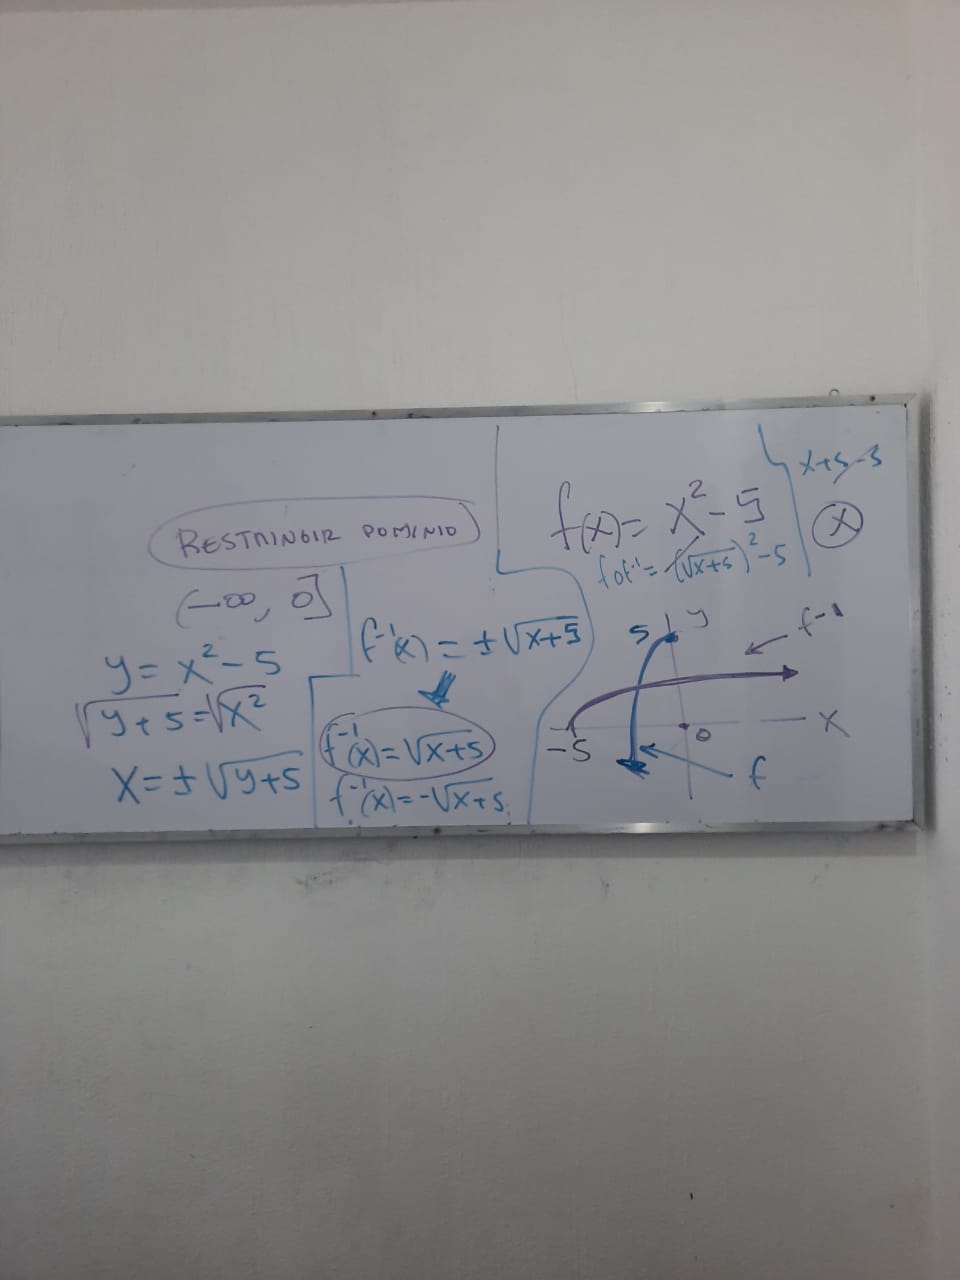 RESTRINGIR DOMINIO
(-∞, 0]
y = x² - 5
√y + 5 = √x²
x = ± √y+5
f⁻¹(x) = ± √x+5
f⁻¹(x) = √x+5
f⁻¹(x) = -√x+5
f(x) = x² - 5
fof⁻¹ = (√x+5)² - 5
x+5-5
x
5
y
f⁻¹
-5
0
x
f